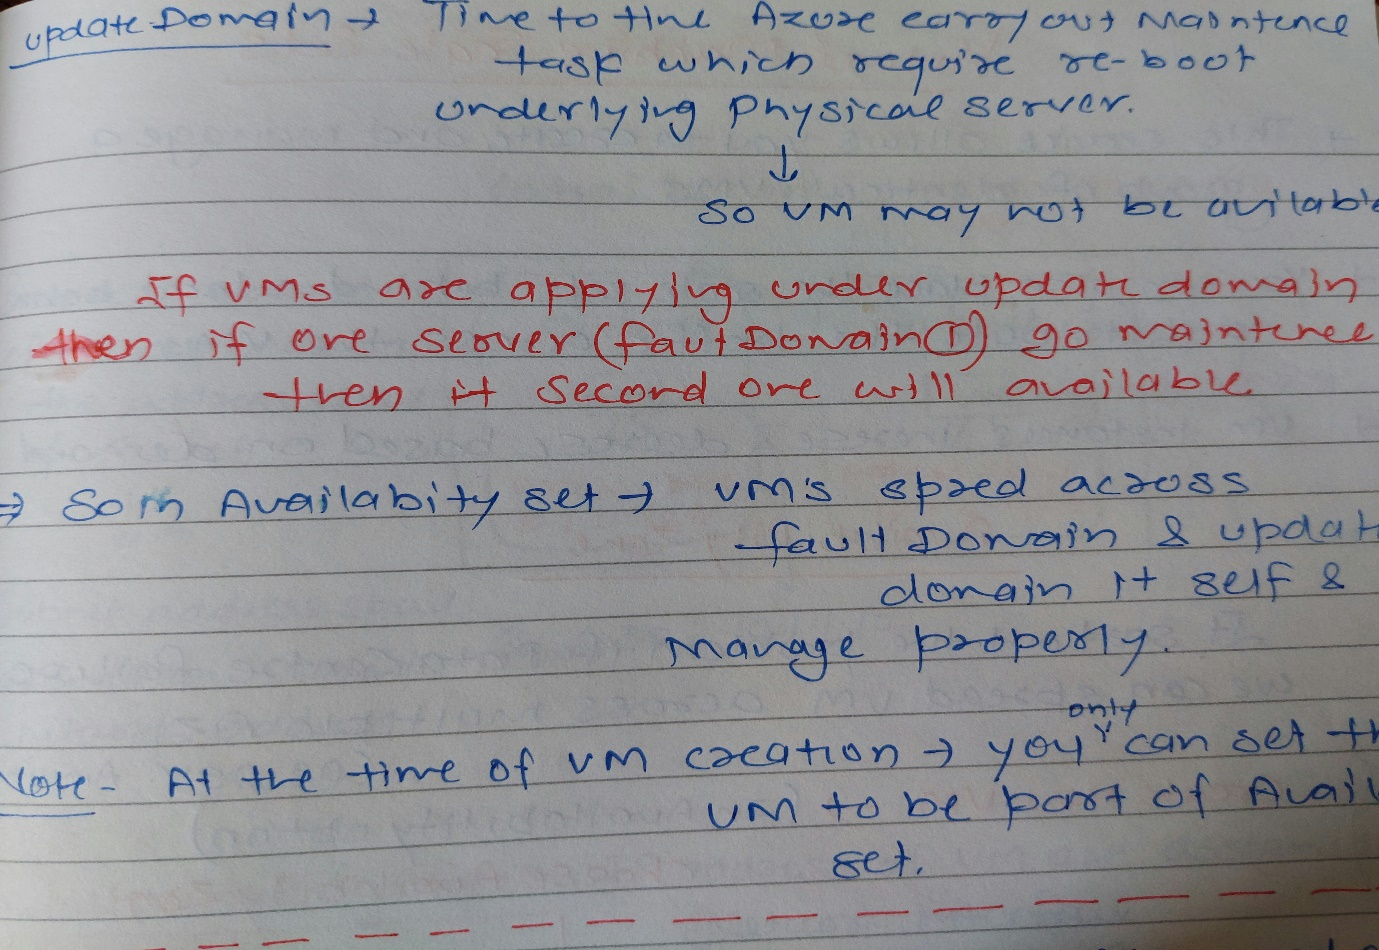 update Domain → Time to time Azure carry out Maintence
task which require re-boot
underlying Physical server.
↓
so VM may not be avilable
If VMs are applying under update domain
then if one server (faut Domain ①) go maintenee
then it second one will available
⇒ So in Availabity set → VM's spred across
fault Domain & updat
domain it self &
Manage properly.
only
Note - At the time of VM creation → you can set th
VM to be part of Avail
set.